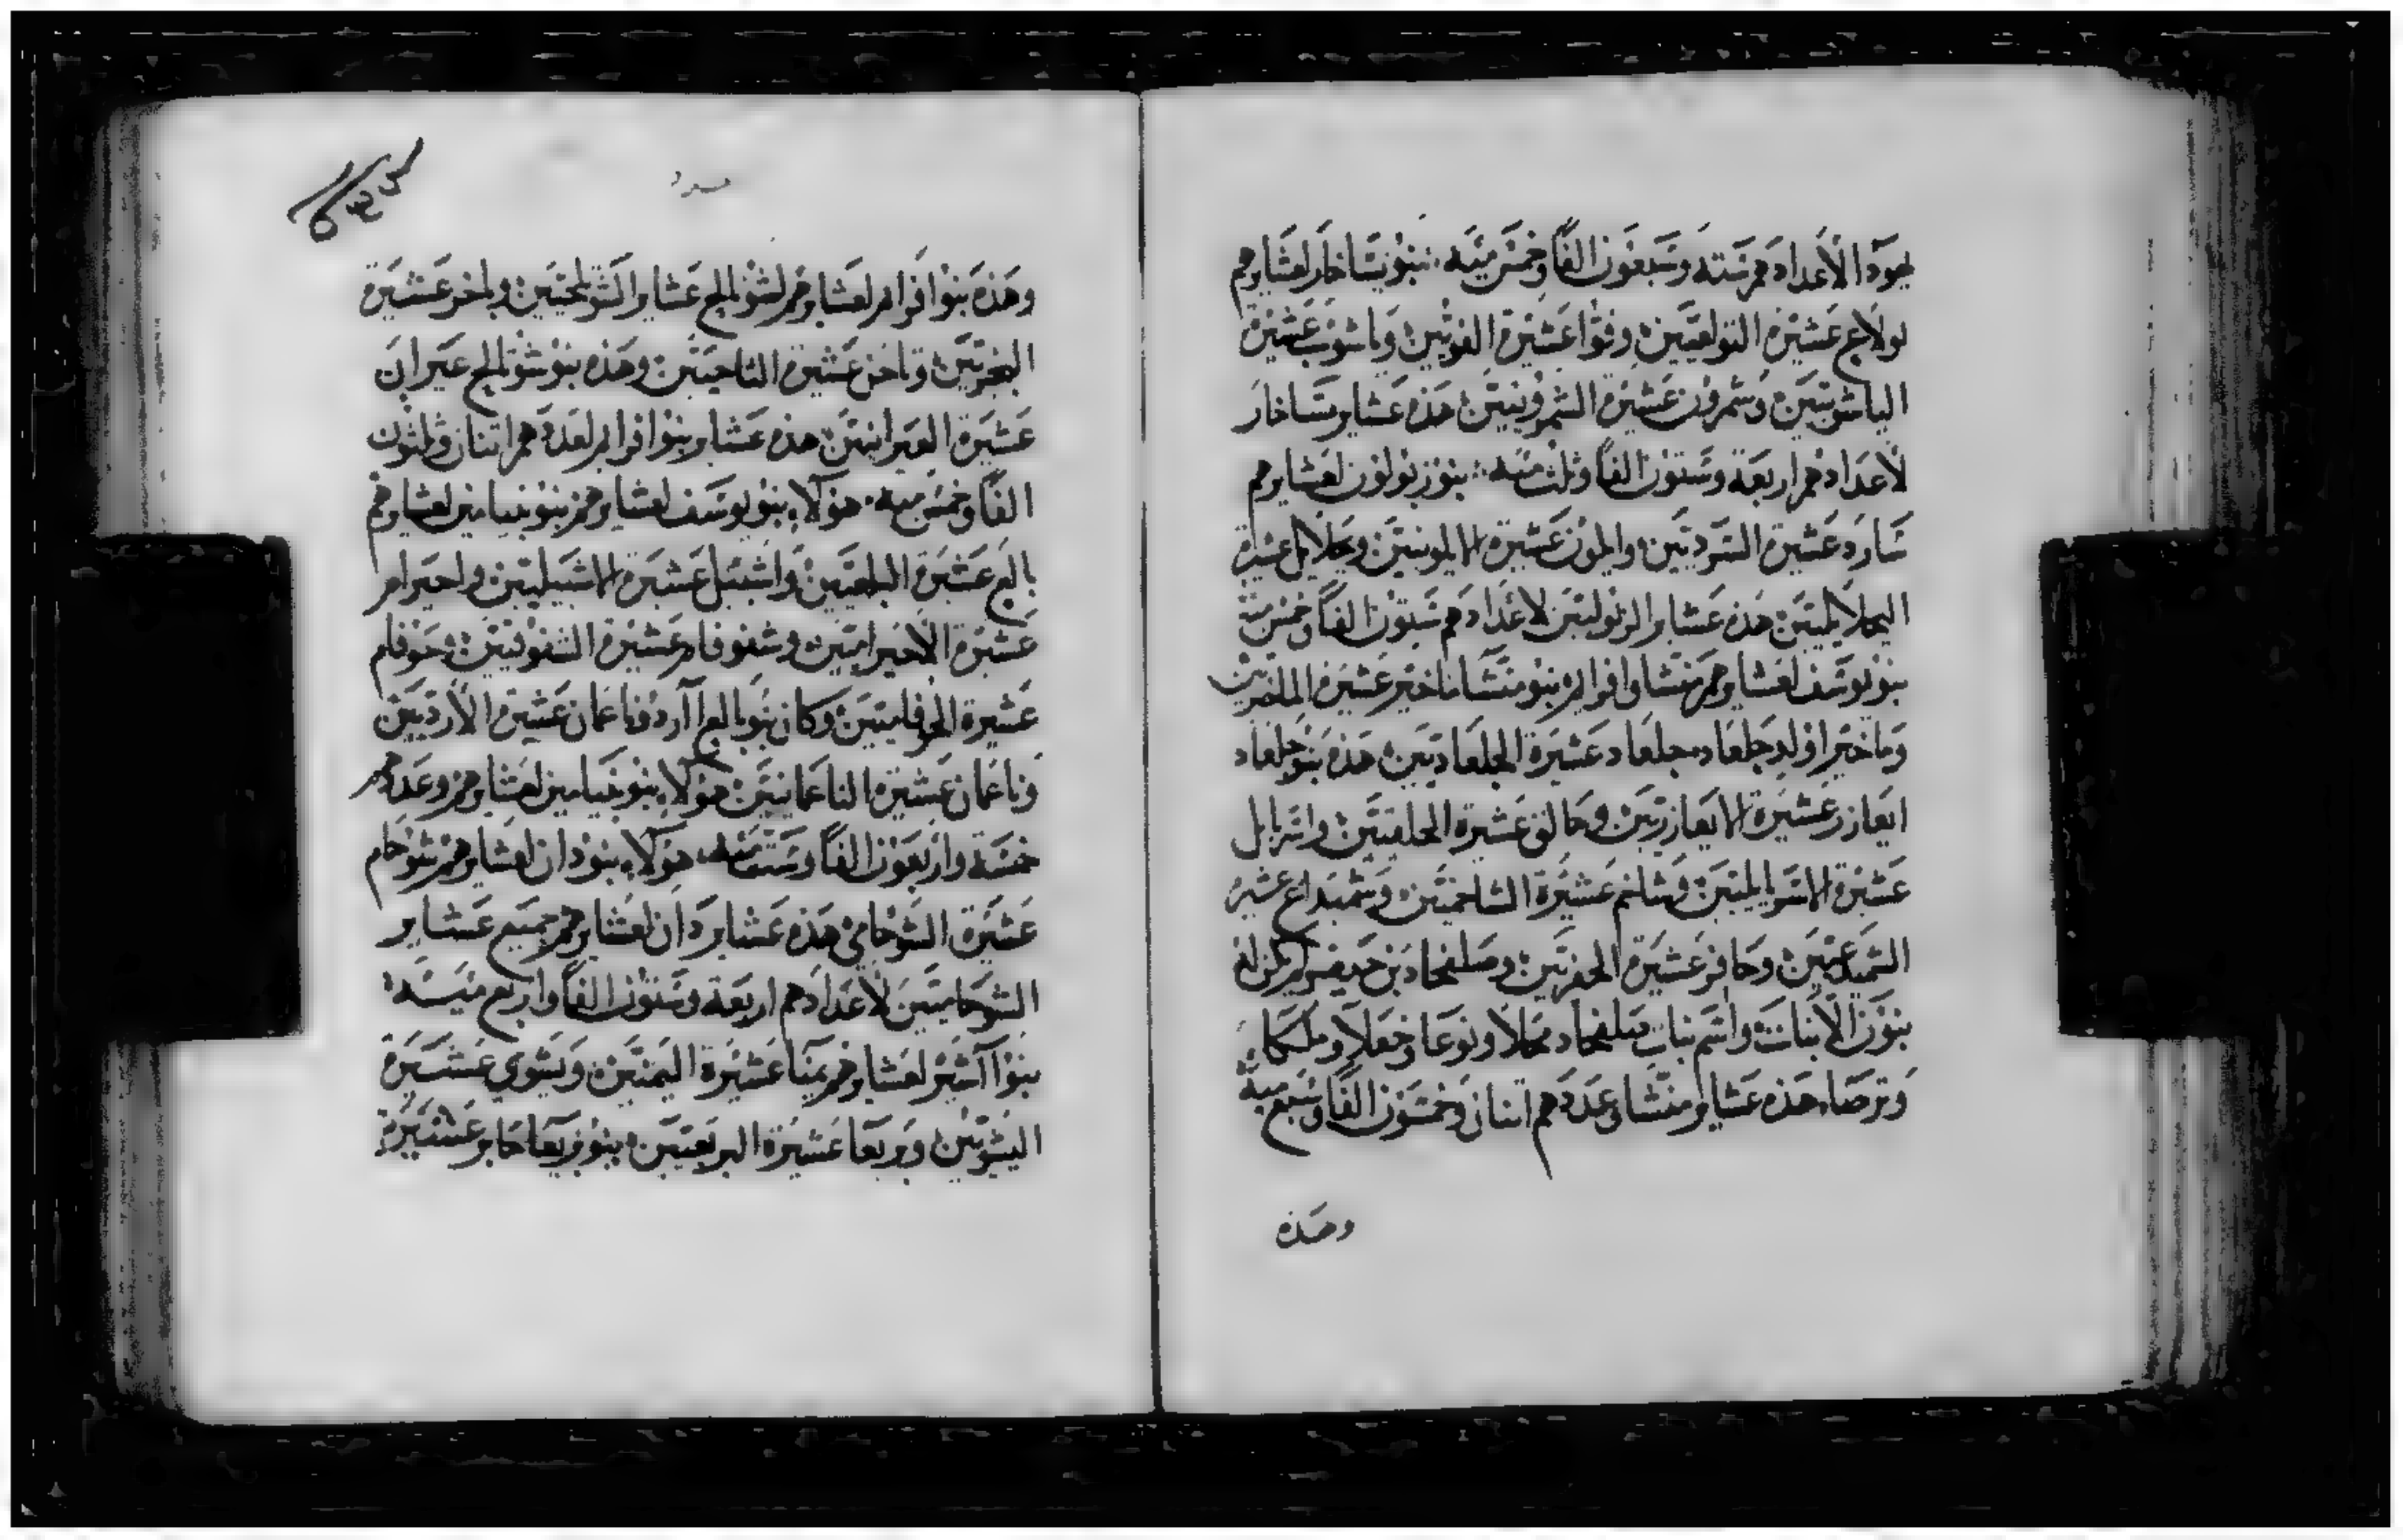 يهودا لاعدادهم ستة وسبعون الفًا وخمس مئه. بنو يساخار لعشايرهم
لولاع عشيرة التولعيين وفوا عشيرة الفوئيين وياشوب عشيرة
الياشوبيين وشمرون عشيرة الشمرونيين هذه عشاير يساخار
لاعدادهم اربعة وستون الفًا وثلث مئه: بنو زبولون لعشايرهم
سارد عشيرة السرديين وايلون عشيرة الايلونيين ويحلايل عشيرة
اليحلايليين هذه عشاير الزبوليين لاعدادهم ستون الفًا وخمس مئة
بنو يوسف لعشايرهم منشا وافرايم بنو منشا ماخير عشيرة الماخريين
وماخير اولد جلعاد. جلعاد عشيرة الجلعاديين هذه بنو جلعاد
ايعازر عشيرة الايعازريين وحالق عشيرة الحلقيين واسريايل
عشيرة الاسريايليين وشاخم عشيرة الشاخميين وشميداع عشيرة
الشميدعيين وحافر عشيرة الحفريين وصلفحاد بن حيفر لم يكن له
بنون الا بنات واسم بنات صلفحاد محلا ونوعا وحعلا وملكا
وترصا. هذه عشاير منشا وعددهم اتنان وخمسون الفًا وسبع مية
وهذه
وهذه بنوا افرام لعشايرهم لشوتالح عشاير الشوتلحيين وباخر عشيرة
البخريين وتاحن عشيرة التاحيين وهذه بنو شوتالح عيران
عشيرة العيرانيين هذه عشاير بنوا افرايم لعددهم اتنان وثلثون
الفًا وخمس مية. هؤلاء بنو يوسف لعشايرهم بنو بنيامين لعشايرهم
بالع عشيرة البلعيين واشبيل عشيرة الاشبيليين واحيرام
عشيرة الاحيراميين وشفوفام عشيرة الشفوفيين وحوفام
عشيرة الحوفاميين وكان بنو بالع آارد وناعمان عشيرة الارديين
وناعمان عشيرة الناعمانيين هؤلاء بنو بنيامين لعشايرهم وعددهم
خمسة واربعون الفًا وستمئه. هؤلاء بنو دان لعشايرهم شوحام
عشيرة الشوحامي هذه عشاير دان لعشايرهم جميع عشاير
الشوحاميين لاعدادهم اربعة وستون الفًا واربع مئة:
بنوا آشير لعشايرهم يمنا عشيرة اليمنيين ويشوي عشيرة
اليشويين وبريعا عشيرة البريعيين. بنو بريعا حابر عشيرة